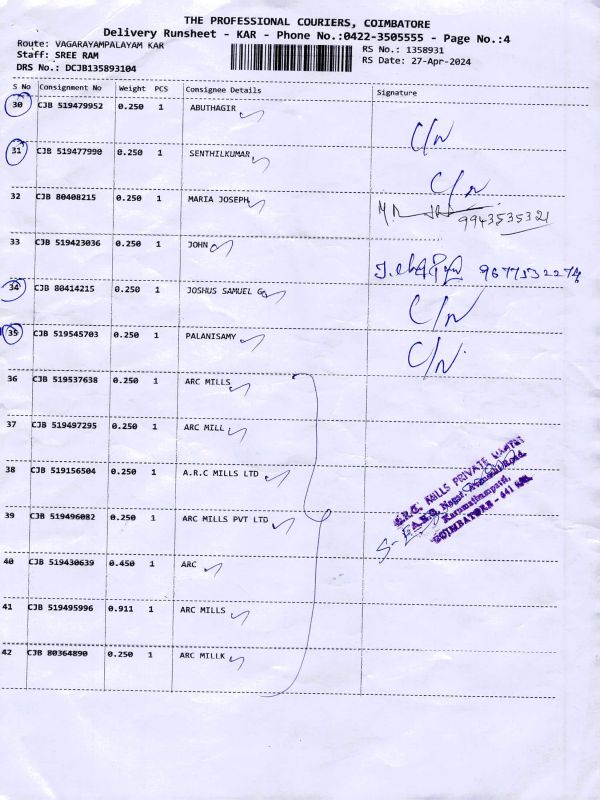 THE PROFESSIONAL COURIERS, COIMBATORE
Delivery Runsheet - KAR - Phone No.:0422-3505555 - Page No.:4
Route: VAGARAYAMPALAYAM KAR
Staff: SREE RAM
DRS No.: DCJB135893104
RS No.: 1358931
RS Date: 27-Apr-2024
S No Consignment No Weight PCS Consignee Details Signature
30 CJB 519479952 0.250 1 ABUTHAGIR C/N
31 CJB 519477990 0.250 1 SENTHILKUMAR C/N
32 CJB 80408215 0.250 1 MARIA JOSEPH 9943535321
33 CJB 519423036 0.250 1 JOHN
34 CJB 80414215 0.250 1 JOSHUS SAMUEL G C/N
35 CJB 519545703 0.250 1 PALANISAMY C/N
36 CJB 519537638 0.250 1 ARC MILLS
37 CJB 519497295 0.250 1 ARC MILL
38 CJB 519156504 0.250 1 A.R.C MILLS LTD
39 CJB 519496082 0.250 1 ARC MILLS PVT LTD
40 CJB 519430639 0.450 1 ARC
41 CJB 519495996 0.911 1 ARC MILLS
42 CJB 80364890 0.250 1 ARC MILLK
MILLS PRIVATE
COIMBATORE - 641